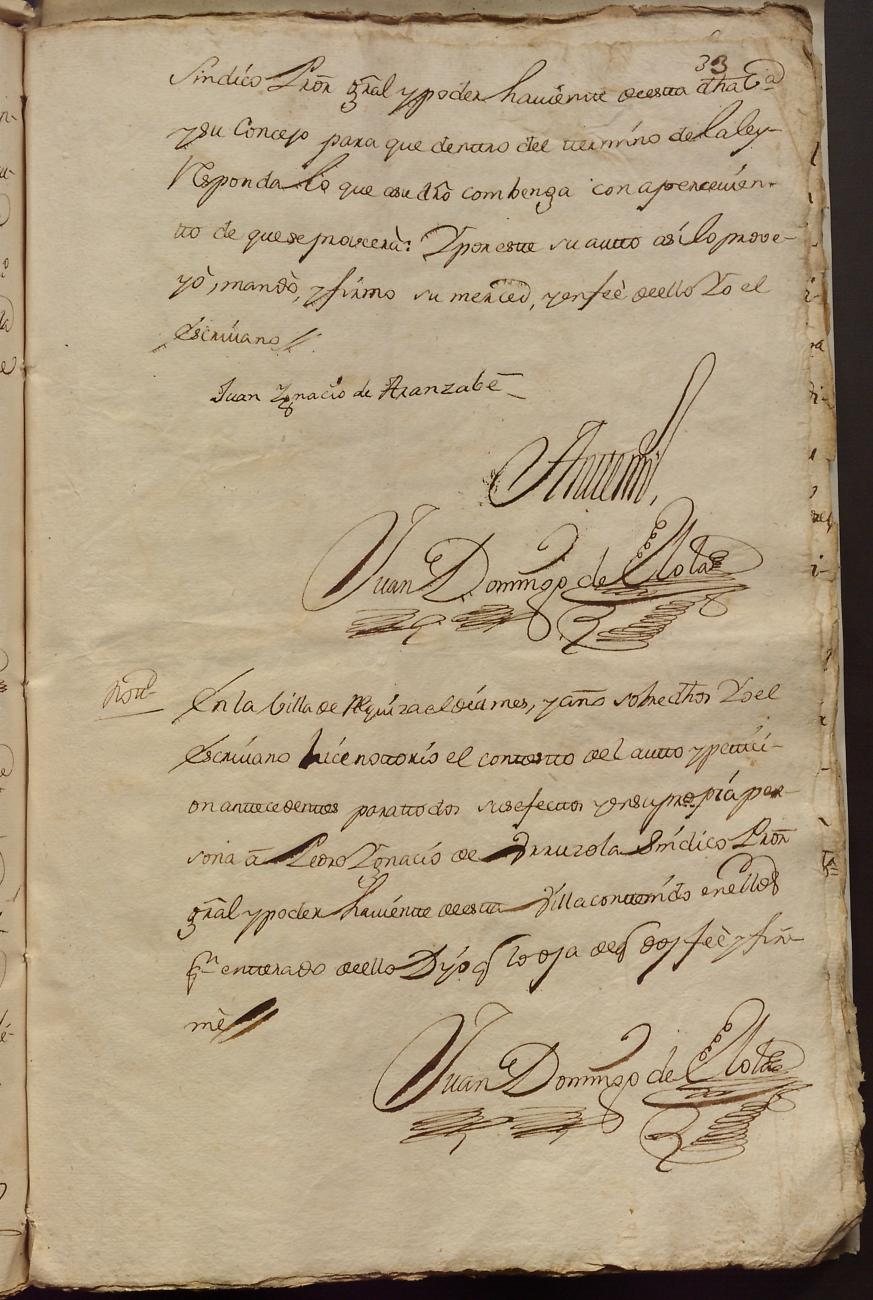 33
Sindico Pror gral y poder haviente de esta dha Va
y su Concejo para que dentro del termino de la ley
Responda lo que a su dro combenga con apercevimien-
tto de que se proveerà: Y por este su autto así lo prove-
yò, mandò, y firmo su merced, y en feè de ello Yo el
Escrivano //
Juan Ygnacio de Aranzabe
Antemi,
Juan Domingo de
Notn
En la Villa de el dia mes, y año sobre dhos Yo el
Escrivano hice nottorio el contexto del autto y petici-
on antecedentes para ttodos sus efectos y en su propia per-
sona â Pedro Ygnacio de Sindico Pror
gral y poder haviente de esta Villa conttenido en ellos
qn entterado de ello Dijo q lo oja de q doy feè y fir-
mè //
Juan Domingo de